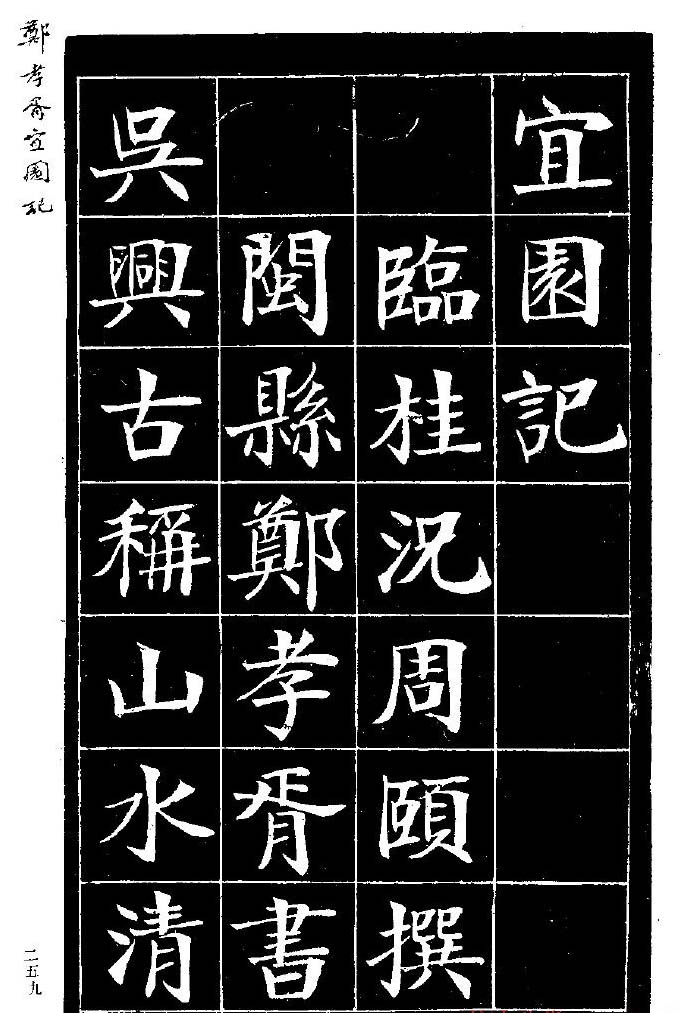 宜園記
臨桂況周頤撰
閩縣鄭孝胥書
吳興古稱山水清
鄭孝胥宜園記
二五九